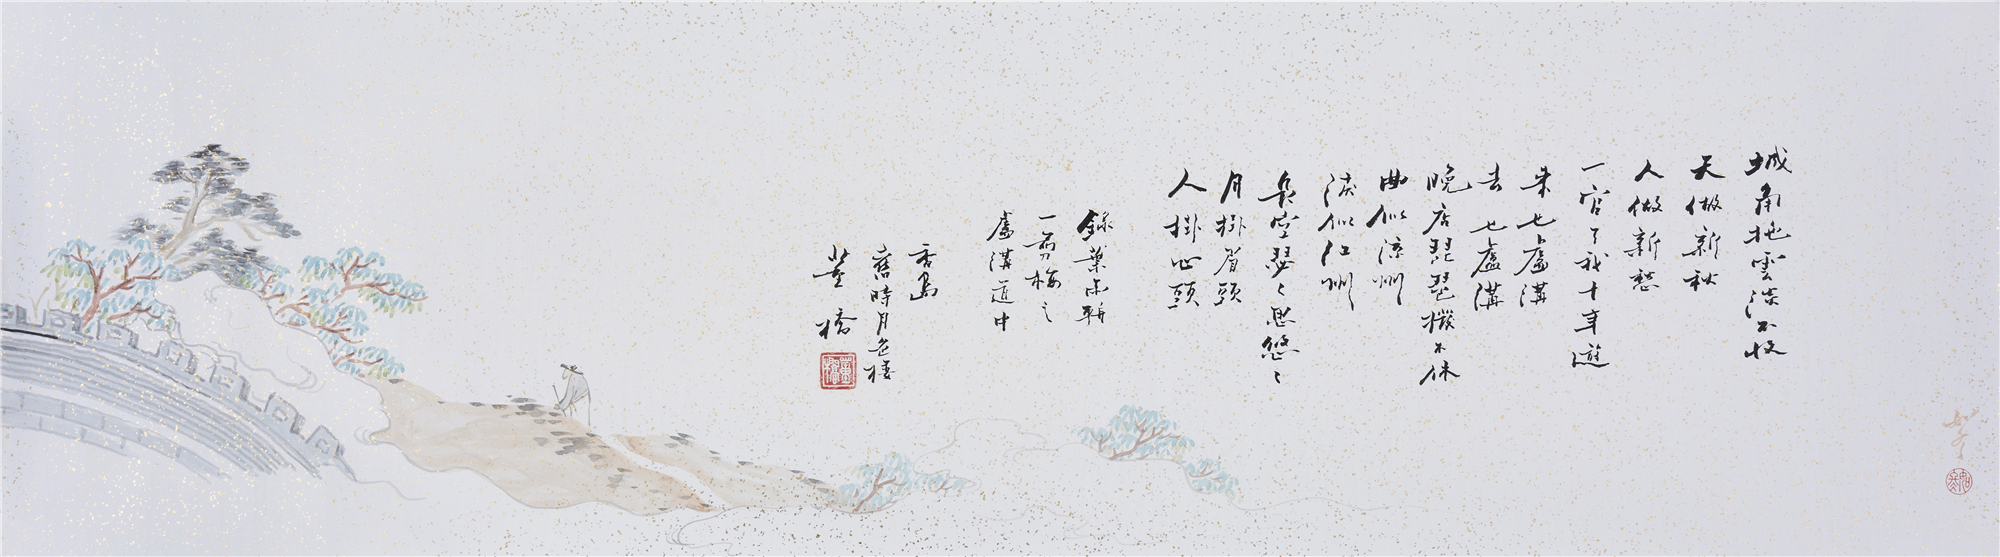 城角拖雲淡不收
天做新秋
人做新愁
一官了我十年遊
來也盧溝
去也盧溝
晚店琵琶撥未休
曲似涼州
淚似江州
長空瑟瑟思悠悠
月掛眉頭
人掛心頭
錄葉
一剪梅之
盧溝道中
香島
舊時月色樓
董橋
董橋